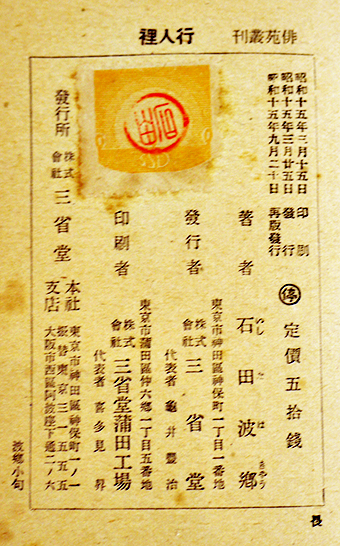 俳苑叢刊　行人裡
昭和十五年三月十五日　印刷
昭和十五年三月廿五日　發行
昭和十五年九月二十日　再版發行
停　定價五拾錢
著者　石田波鄕
いし　だ　は　きやう
東京市神田區神保町一丁目一番地
發行者　株式會社　三省堂
代表者　龜井豐治
東京市蒲田區仲六鄕一丁目五番地
印刷者　株式會社　三省堂蒲田工場
代表者　喜多見昇
發行所　株式會社　三省堂
本社　東京市神田區神保町一ノ一
振替東京三一五五五
支店　大阪市西區阿波座下通二ノ六
波鄕小句